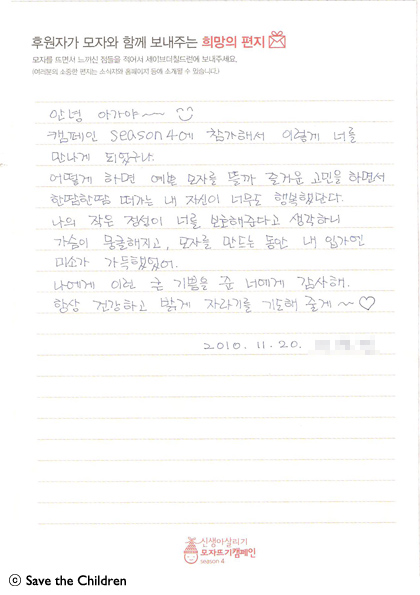 후원자가 모자와 함께 보내주는 희망의 편지
모자를 뜨면서 느끼신 점들을 적어서 세이브더칠드런에 보내주세요.
(여러분의 소중한 편지는 소식지와 홈페이지 등에 소개될 수 있습니다.)
안녕 아가야~~
캠페인 season4에 참가해서 이렇게 너를
만나게 되었구나.
어떻게 하면 예쁜 모자를 뜰까 즐거운 고민을 하면서
한땀한땀 떠가는 내 자신이 너무도 행복했단다.
나의 작은 정성이 너를 보호해준다고 생각하니
가슴이 뭉클해지고, 모자를 만드는 동안 내 입가엔
미소가 가득했었어.
나에게 이런 큰 기쁨을 준 너에게 감사해.
항상 건강하고 밝게 자라기를 기도해 줄게~♡
2010. 11. 20.
신생아살리기
모자뜨기캠페인
season 4
ⓒ Save the Children